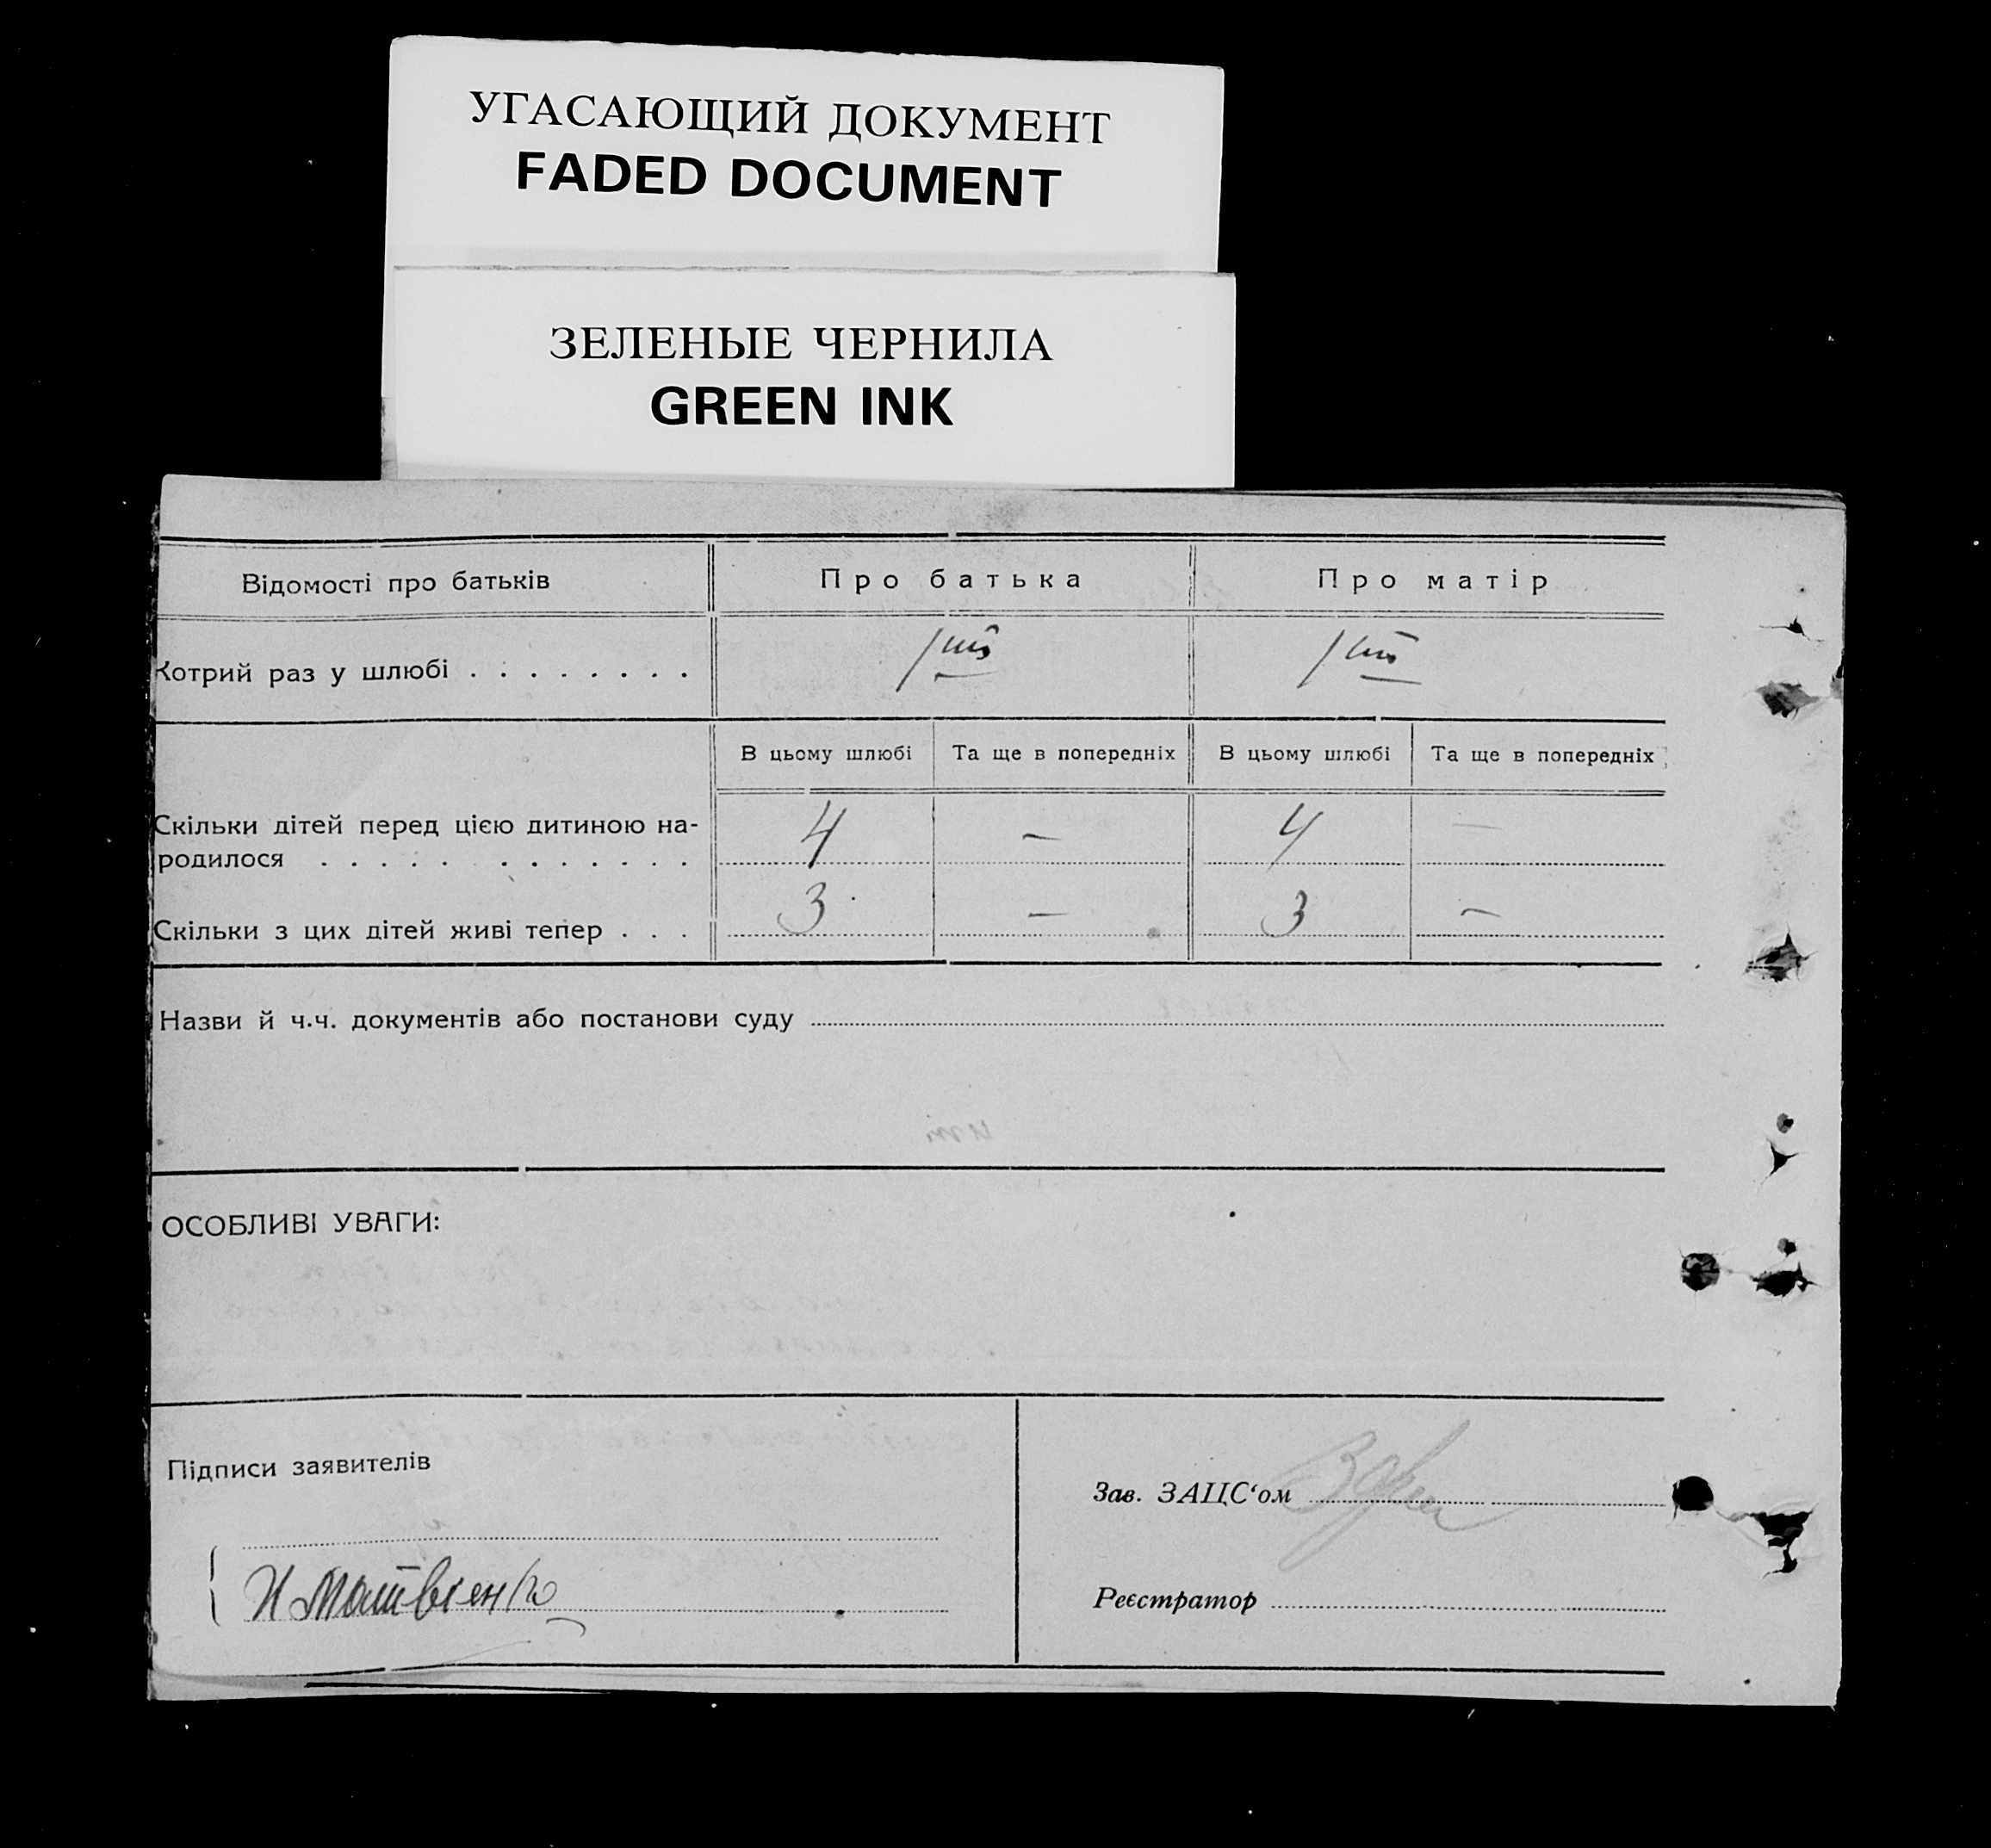 УГАСАЮЩИЙ ДОКУМЕНТ
FADED DOCUMENT
ЗЕЛЕНЫЕ ЧЕРНИЛА
GREEN INK
Відомості про батьків Про батька Про матір
Котрий раз у шлюбі . . . . . . . .
В цьому шлюбі Та ще в попередніх В цьому шлюбі Та ще в попередніх
Скільки дітей перед цією дитиною на-
родилося . . . . . . . . . . . . 4 — 4 —
Скільки з цих дітей живі тепер . . . 3 — 3 —
Назви й ч.ч. документів або постанови суду
ОСОБЛИВІ УВАГИ:
Підписи заявителів
Зав. ЗАЦС‘ом
И Матвієнко
Реєстратор